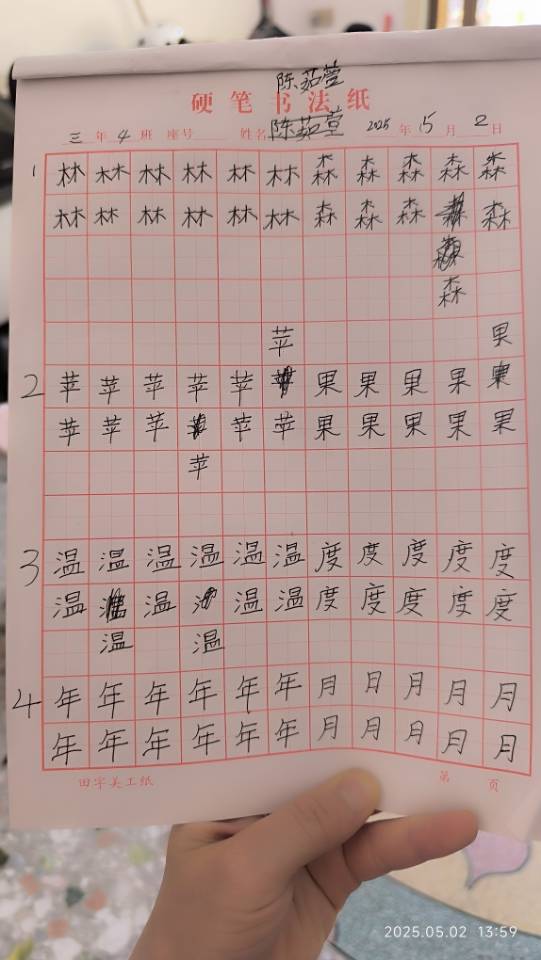 陈茹萱
硬笔书法纸
三年4班 座号 姓名 陈茹萱 2025年15月2日
1 林 林 林 林 林 林 森 森 森 森 森
林 林 林 林 林 林 森 森 森 森
森
苹 果
2 苹 苹 苹 苹 苹 果 果 果 果
苹 苹 苹 苹 苹 果 果 果 果 果
苹
3 温 温 温 温 温 温 度 度 度 度 度
温 温 温 温 度 度 度 度 度
温 温
4 年 年 年 年 年 年 月 月 月 月 月
年 年 年 年 年 年 月 月 月 月 月
田字美工纸 第 页
2025.05.02 13:59